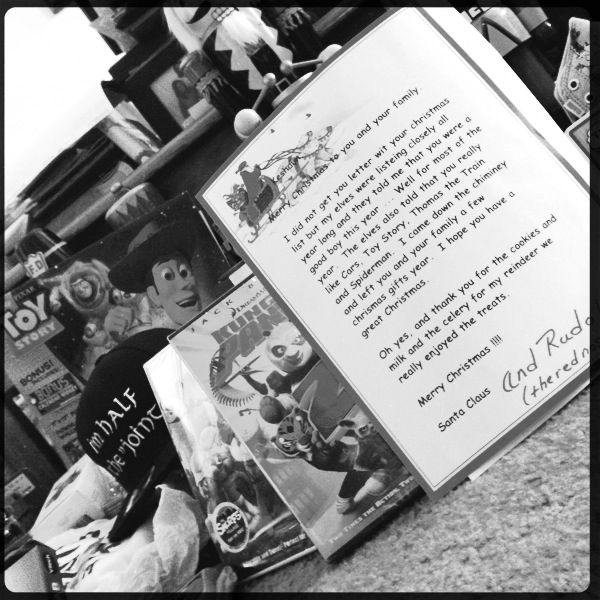 Keahan
Merry Christmas to you and your family.
I did not get you letter wit your christmas
list but my elves were listeing closely all
year long and they told me that you were a
good boy this year ... Well for most of the
year. The elves also told that you really
like Cars, Toy Story, Thomas the Train
and Spiderman. I came down the chiminey
and left you and your family a few
chrismas gifts year. I hope you have a
great Christmas.
Oh yes, and thank you for the cookies and
milk and the celery for my reindeer we
really enjoyed the treats.
Merry Christmas !!!!
Santa Claus and Rudo
(the redn
PIXAR
TOY
STORY
BONUS!
I'm HALF
the "joint
JACK B
DREAMWORKS
KUNG FU
PANDA